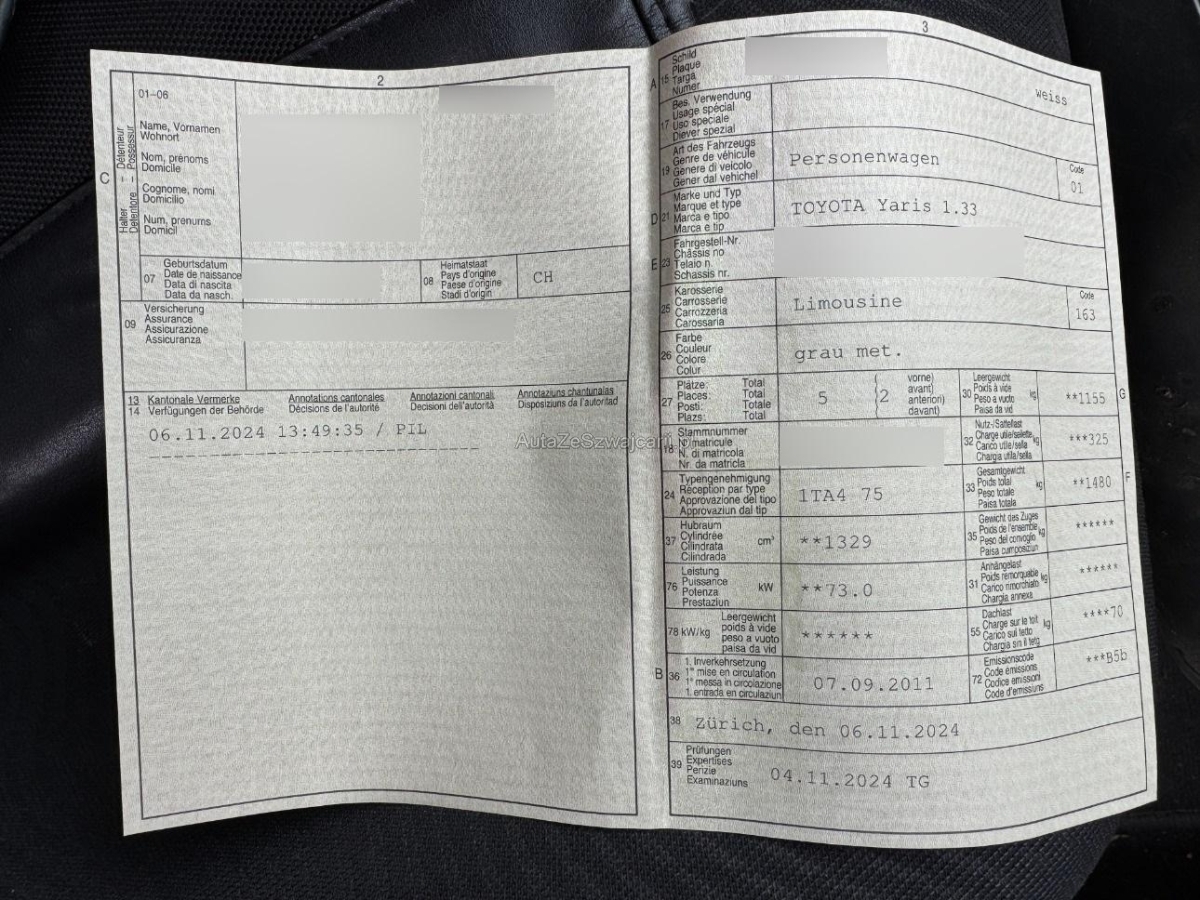 2
01–06
Name, Vornamen
Wohnort
Nom, prénoms
Domicile
Cognome, nomi
Domicilio
Num, prenums
Domicil
C
Halter – Détenteur
Detentore – Possessur
07
Geburtsdatum
Date de naissance
Data di nascita
Data da nasch.
08
Heimatstaat
Pays d'origine
Paese d'origine
Stadi d'origin
CH
09
Versicherung
Assurance
Assicurazione
Assicuranza
13 Kantonale Vermerke
14 Verfügungen der Behörde
Annotations cantonales
Décisions de l'autorité
Annotazioni cantonali
Decisioni dell'autorità
Annotaziuns chantunalas
Dispoziziuns da l'autoritad
06.11.2024 13:49:35 / PIL
AutaZeSzwajcarii
3
A 15
Schild
Plaque
Targa
Numer
weiss
17
Bes. Verwendung
Usage spécial
Uso speciale
Diever spezial
19
Art des Fahrzeugs
Genre de véhicule
Genere di veicolo
Gener dal vehichel
Personenwagen
Code
01
D 21
Marke und Typ
Marque et type
Marca e tipo
Marca e tip
TOYOTA Yaris 1.33
E 23
Fahrgestell-Nr.
Châssis no
Telaio n.
Schassis nr.
25
Karosserie
Carrosserie
Carrozzeria
Carossaria
Limousine
Code
163
26
Farbe
Couleur
Colore
Colur
grau met.
27
Plätze: Total
Places: Total
Posti: Totale
Plazs: Total
5
(2
vorne)
avant)
anteriori)
davant)
30
Leergewicht
Poids à vide
Peso a vuoto
Paisa da vid
kg
**1155
G
18
Stammnummer
No matricule
N. di matricola
Nr. da matricla
32
Nutz-/Sattellast
Charge utile/sellette
Carico utile/sella
Chargia utila/sella
kg
***325
24
Typengenehmigung
Réception par type
Approvazione del tipo
Approvaziun dal tip
1TA4 75
33
Gesamtgewicht
Poids total
Peso totale
Paisa totala
kg
**1480
F
37
Hubraum
Cylindrée
Cilindrata
Cilindrada
cm³
**1329
35
Gewicht des Zuges
Poids de l'ensemble
Peso del convoglio
Paisa cumposiziun
kg
******
76
Leistung
Puissance
Potenza
Prestaziun
kW
**73.0
31
Anhängelast
Poids remorquable
Carico rimorchiato
Chargia annexa
kg
******
78 kW/kg
Leergewicht
poids à vide
peso a vuoto
paisa da vid
******
55
Dachlast
Charge sur le toit
Carico sul tetto
Chargia sin il tetg
kg
****70
B 36
1. Inverkehrsetzung
1re mise en circulation
1a messa in circolazione
1. entrada en circulaziun
07.09.2011
72
Emissionscode
Code émissions
Codice emissioni
Code d'emissiuns
***B5b
38
Zürich, den 06.11.2024
39
Prüfungen
Expertises
Perizie
Examinaziuns
04.11.2024 TG